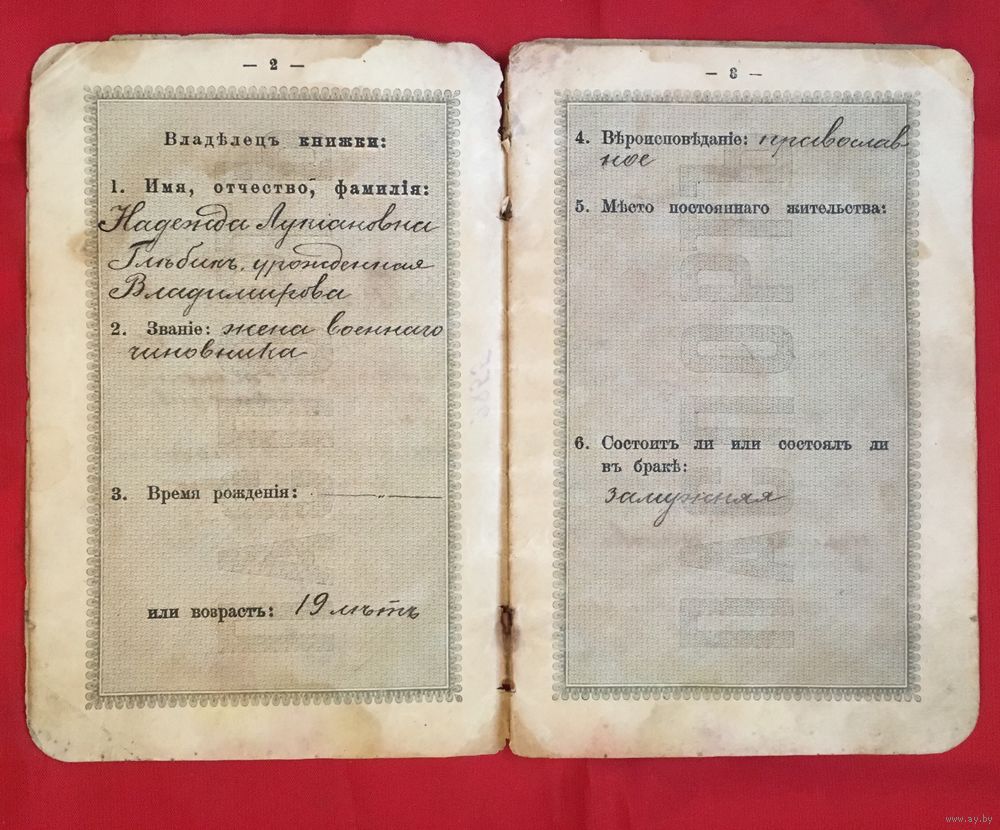 — 2 —
Владѣлецъ книжки:
1. Имя, отчество, фамилія:
Надежда Лукіановна
Глѣбикъ, урожденная
Владимирова
2. Званіе: жена военнаго
чиновника
3. Время рожденія:
или возрастъ: 19 лѣтъ
— 3 —
4. Вѣроисповѣданіе: православ
ное
5. Мѣсто постояннаго жительства:
6. Состоитъ ли или состоялъ ли
въ бракѣ:
замужняя
www.ay.by